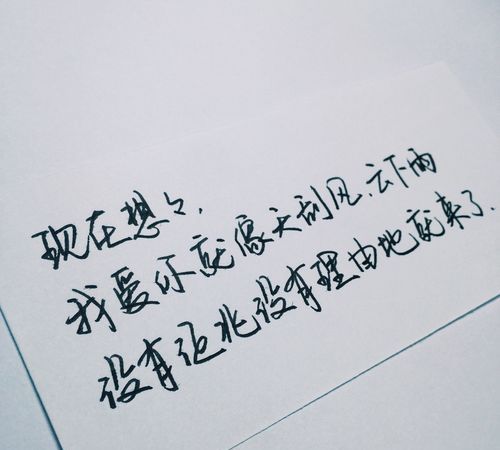 现在想々,
我爱你就像天刮风.云下雨
没有征兆没有理由地就来了.